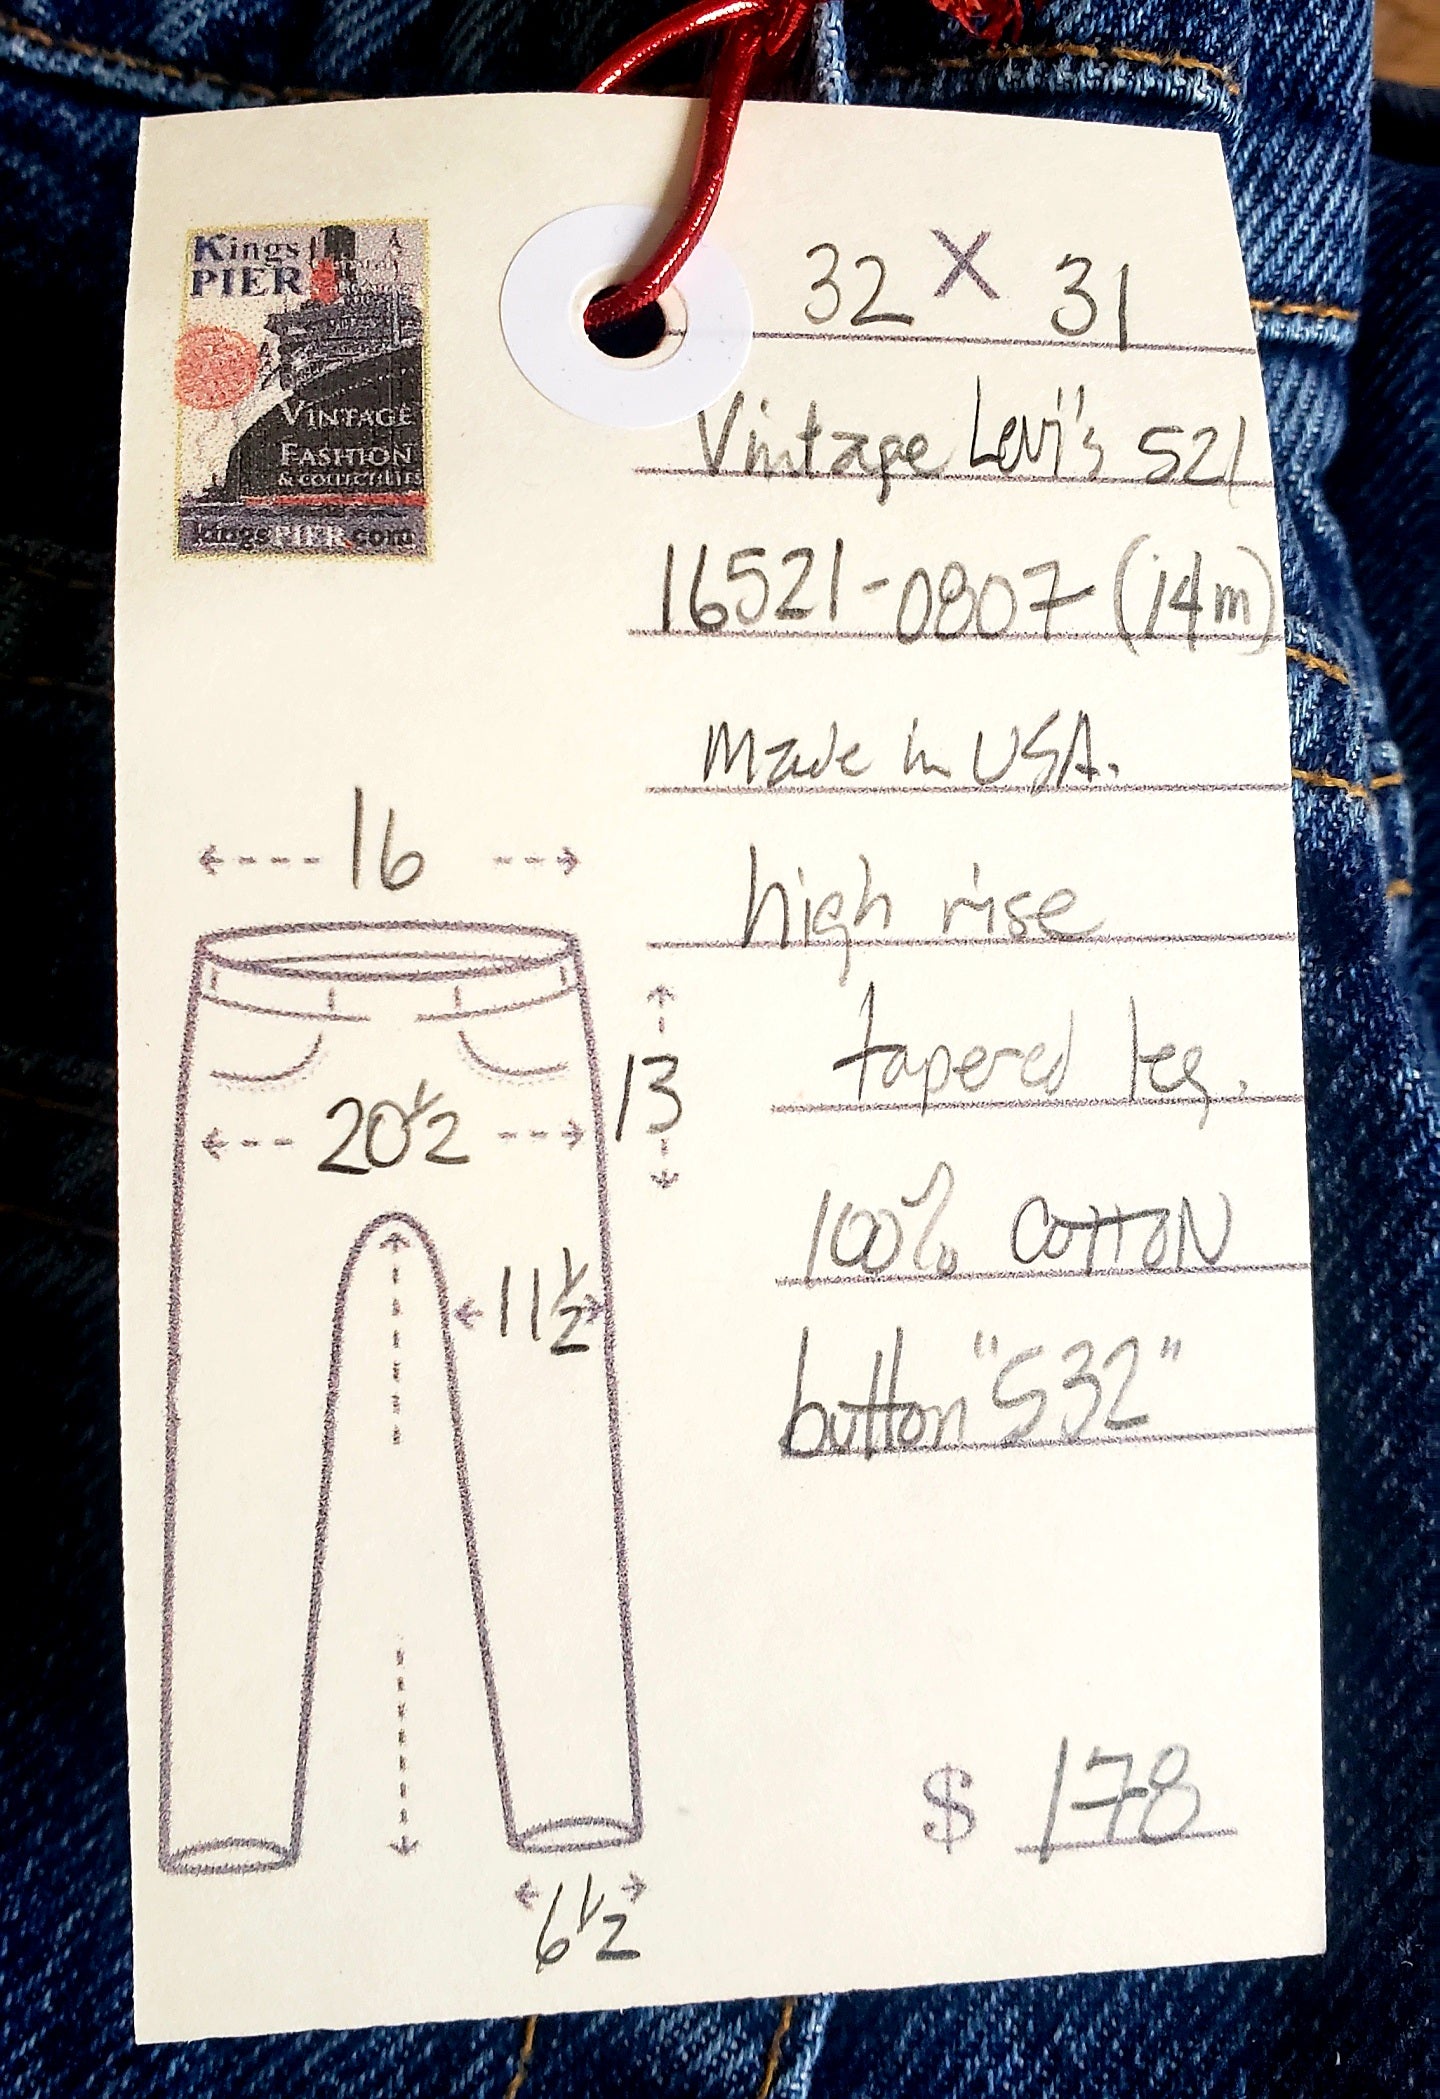 Kings
PIER
VINTAGE
FASHION
& COLLECTIBLES
kingsPIER.com
32 X 31
Vintage Levi's 521
16521-0807 (14m)
Made in USA.
high rise
tapered leg.
100% COTTON
button "532"
16
20 1/2
13
11 1/2
6 1/2
$ 178